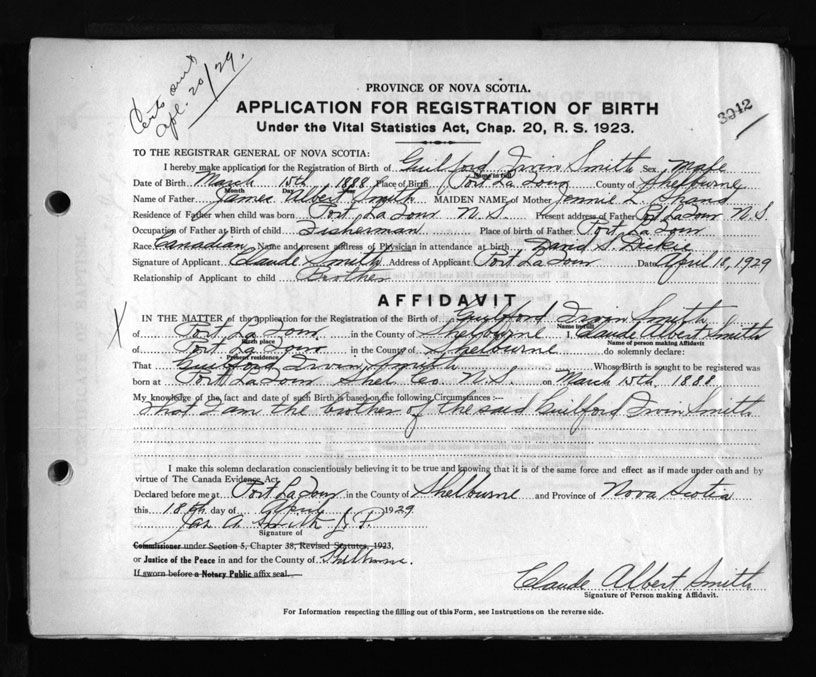 Certs sent
Apl. 20/29.
3942
PROVINCE OF NOVA SCOTIA.
APPLICATION FOR REGISTRATION OF BIRTH
Under the Vital Statistics Act, Chap. 20, R. S. 1923.
TO THE REGISTRAR GENERAL OF NOVA SCOTIA:
I hereby make application for the Registration of Birth of Guilford Irvin Smith Sex Male
Name in full
Date of Birth March 15th 1888 Place of Birth Port La Tour County of Shelburne
Month Day Year
Name of Father James Albert Smith MAIDEN NAME of Mother Jennie L.
Residence of Father when child was born Port La Tour N. S. Present address of Father Port La Tour N. S.
Occupation of Father at Birth of child Fisherman Place of birth of Father Port La Tour
Race Canadian Name and present address of Physician in attendance at birth David S. Dickie
Signature of Applicant Claude Smith Address of Applicant Port La Tour Date April 18, 1929
Relationship of Applicant to child Brother
AFFIDAVIT
X
IN THE MATTER of the application for the Registration of the Birth of Guilford Irvin Smith
Name in full
of Port La Tour in the County of Shelburne I, Claude Albert Smith
Birth place Name of person making Affidavit
of Port La Tour in the County of Shelburne do solemnly declare:
Present residence
That Guilford Irvin Smith Whose Birth is sought to be registered was
born at Port La Tour Shel Co. N. S. on March 15th, 1888
My knowledge of the fact and date of such Birth is based on the following Circumstances :--
That I am the brother of the said Guilford Irvin Smith
I make this solemn declaration conscientiously believing it to be true and knowing that it is of the same force and effect as if made under oath and by
virtue of The Canada Evidence Act.
Declared before me at Port La Tour in the County of Shelburne and Province of Nova Scotia
this 18th day of April 1929
Jas. A. Smith J. P.
Signature of
Commissioner under Section 5, Chapter 38, Revised Statutes, 1923,
or Justice of the Peace in and for the County of Shelburne.
If sworn before a Notary Public affix seal.
Claude Albert Smith
Signature of Person making Affidavit.
For Information respecting the filling out of this Form, see Instructions on the reverse side.